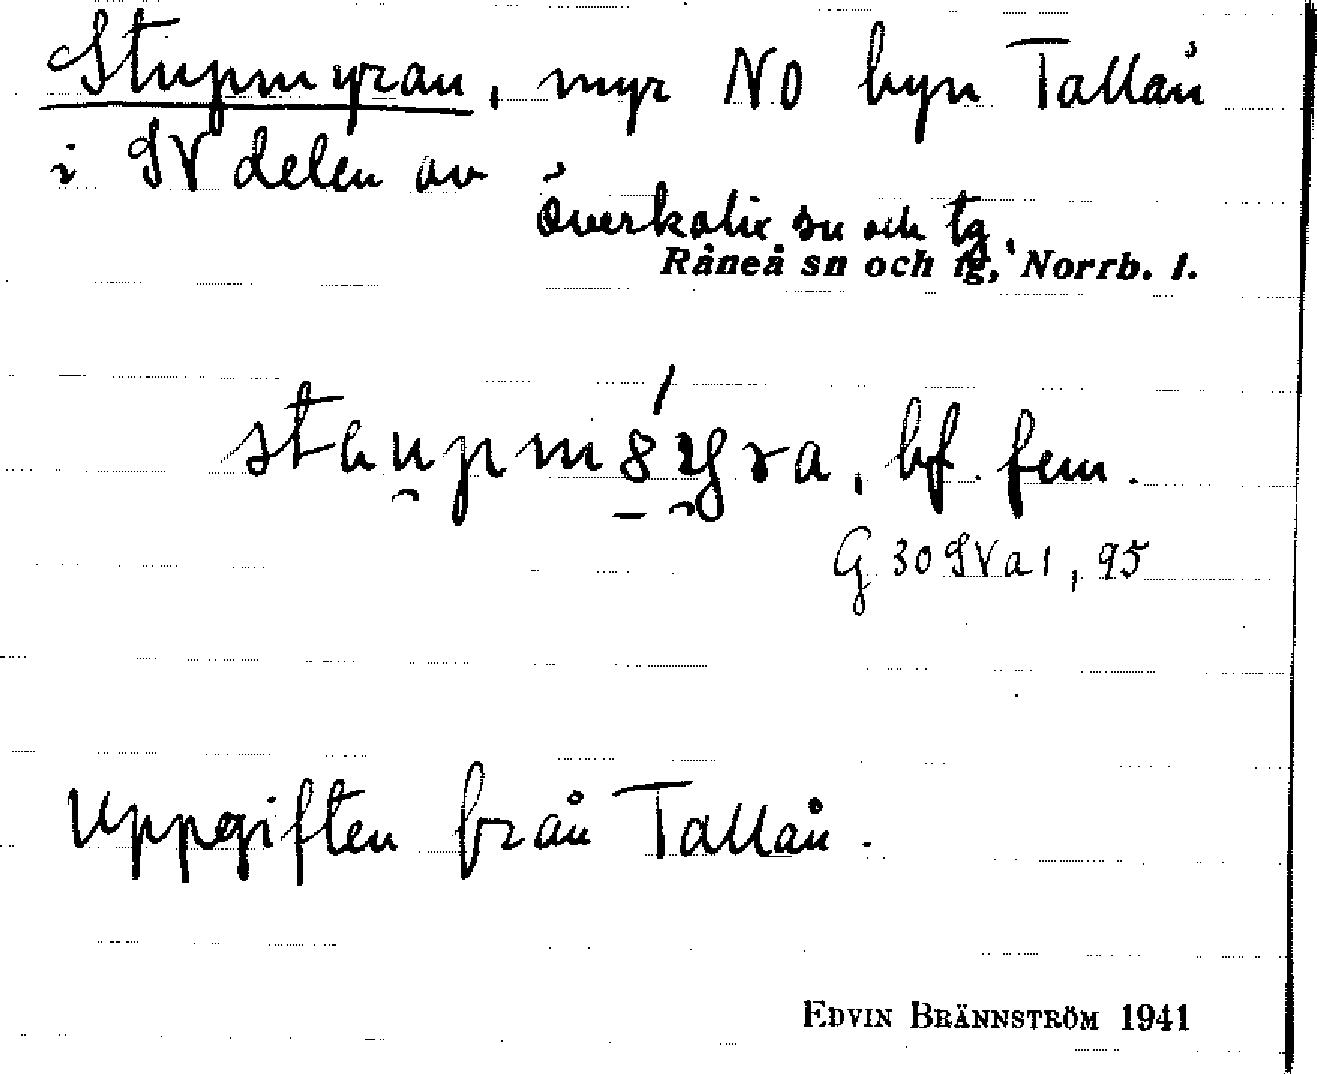 Stupmyran, myr NO byn Tallån
i SV delen av
överkalix sn och tg.
Råneå sn och tg, Norrb. l.
bf. fem.
G 30 SV a 1, 95
Uppgiften från Tallån.
EDVIN BRÄNNSTRÖM 1941